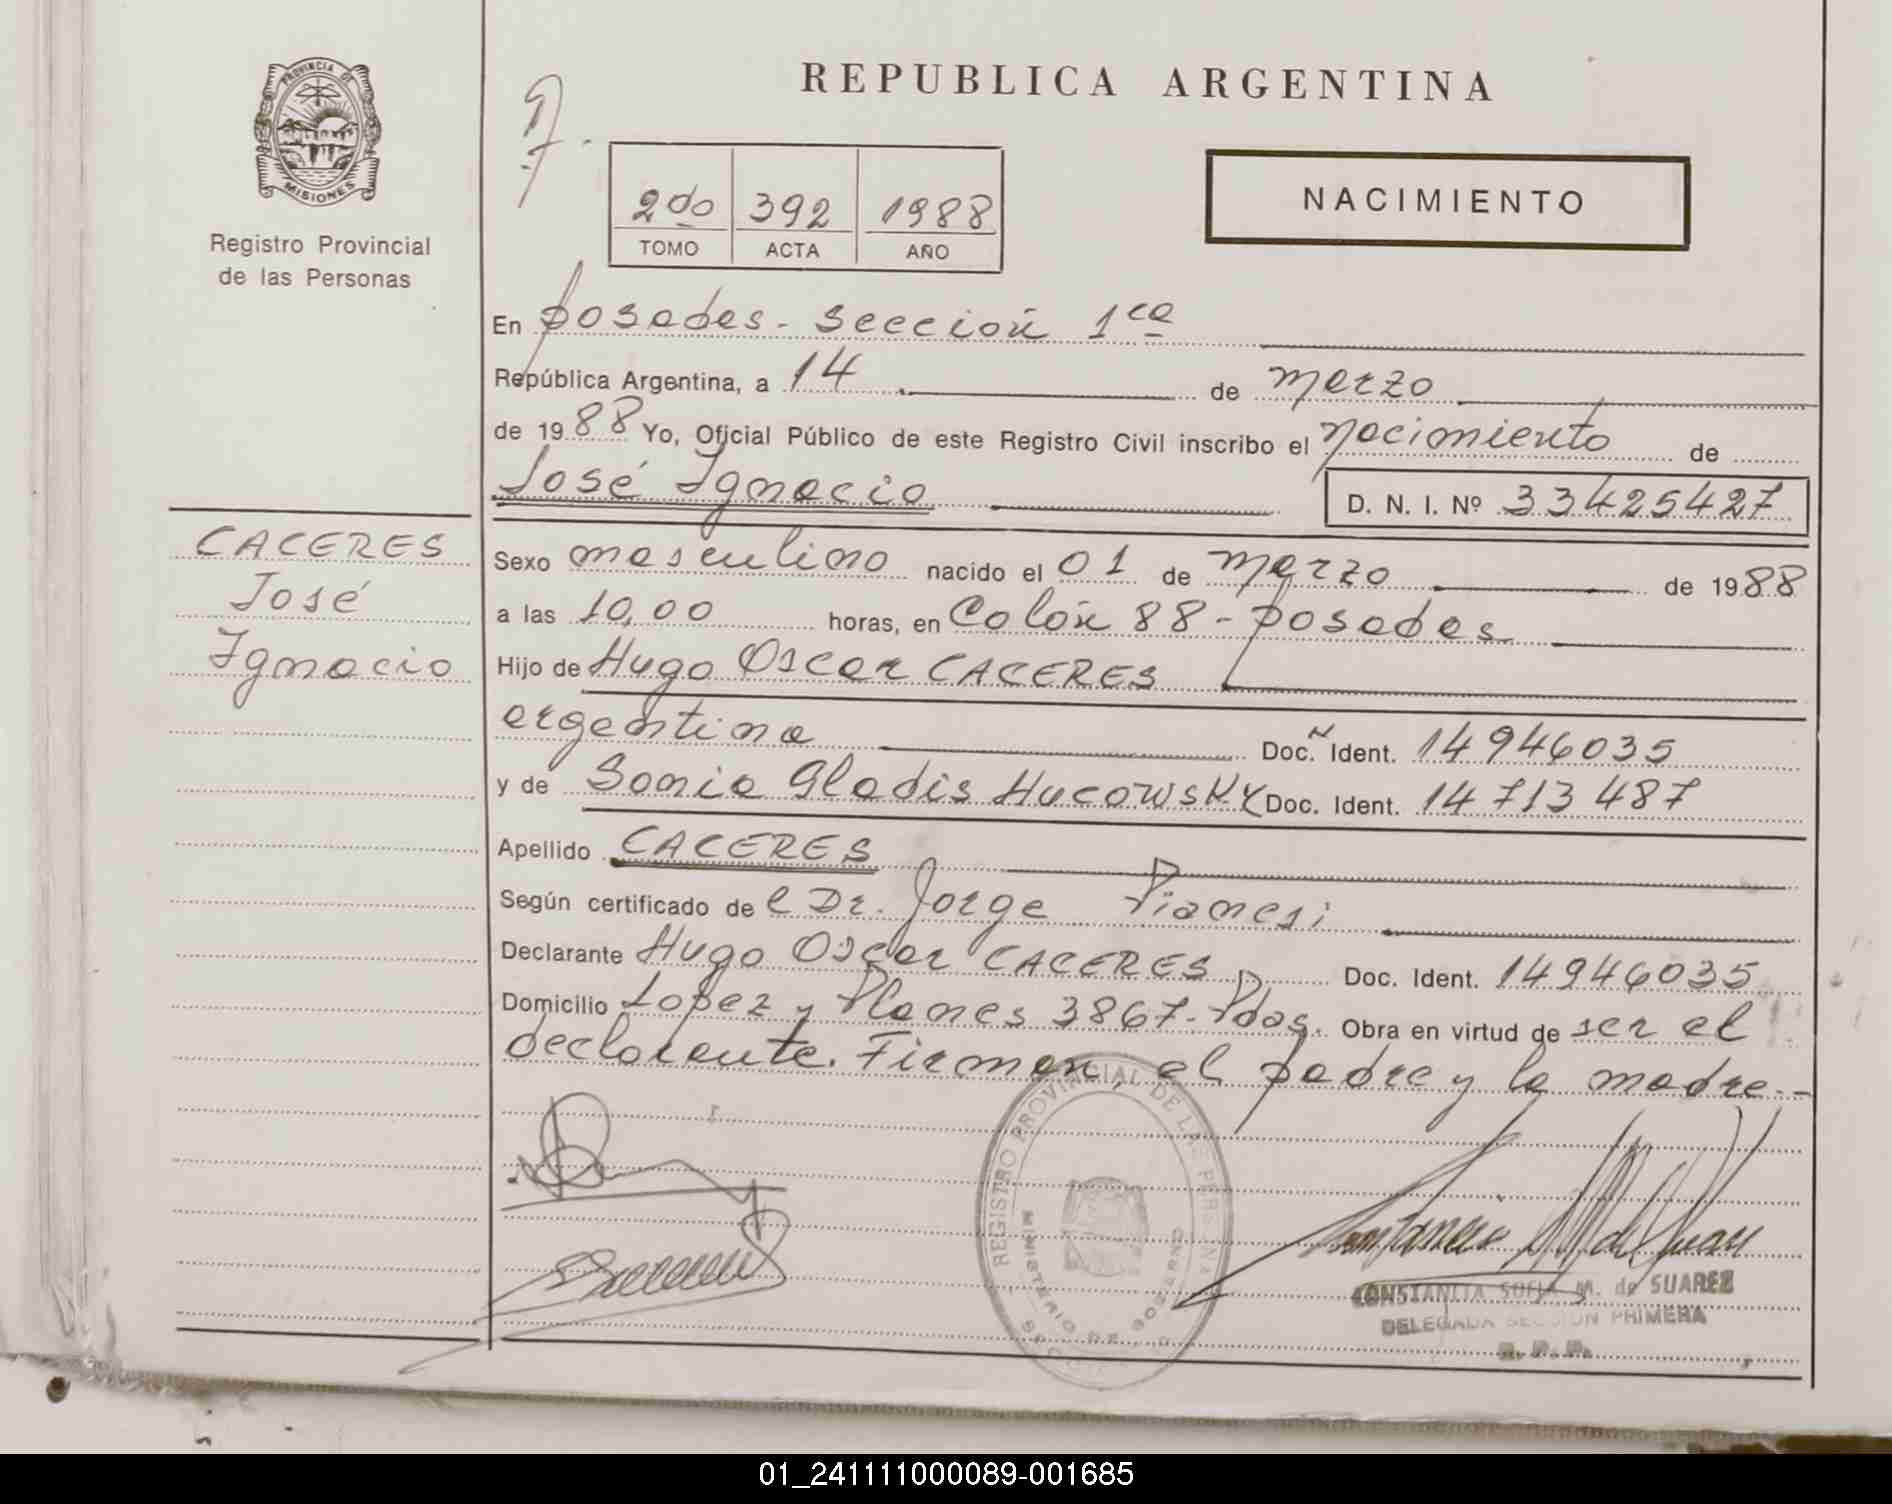 PROVINCIA DE
MISIONES
Registro Provincial
de las Personas
REPUBLICA ARGENTINA
2do 392 1988
TOMO ACTA AÑO
NACIMIENTO
En posadas - sección 1ra
República Argentina, a 14 de marzo
de 1988 Yo, Oficial Público de este Registro Civil inscribo el nacimiento de
José Ignacio
D. N. I. Nº 33425427
CACERES
José
Ignacio
Sexo masculino nacido el 01 de marzo de 1988
a las 10,00 horas, en Colón 88 - posadas
Hijo de Hugo Oscar CACERES
argentina Doc. Ident. 14946035
y de Sonia Gladis HUCOWSKY Doc. Ident. 14713487
Apellido CACERES
Según certificado de l Dr. Jorge Pianesi
Declarante Hugo Oscar CACERES Doc. Ident. 14946035
Domicilio Lopez y Planes 3867-Pdas. Obra en virtud de ser el
declarante. Firman, el padre y la madre.-
REGISTRO PROVINCIAL DE LAS PERSONAS
MINISTERIO DE GOBIERNO
CONSTANCIA SOFIA M. de SUAREZ
DELEGADA SECCION PRIMERA
R. P. P.
01_241111000089-001685